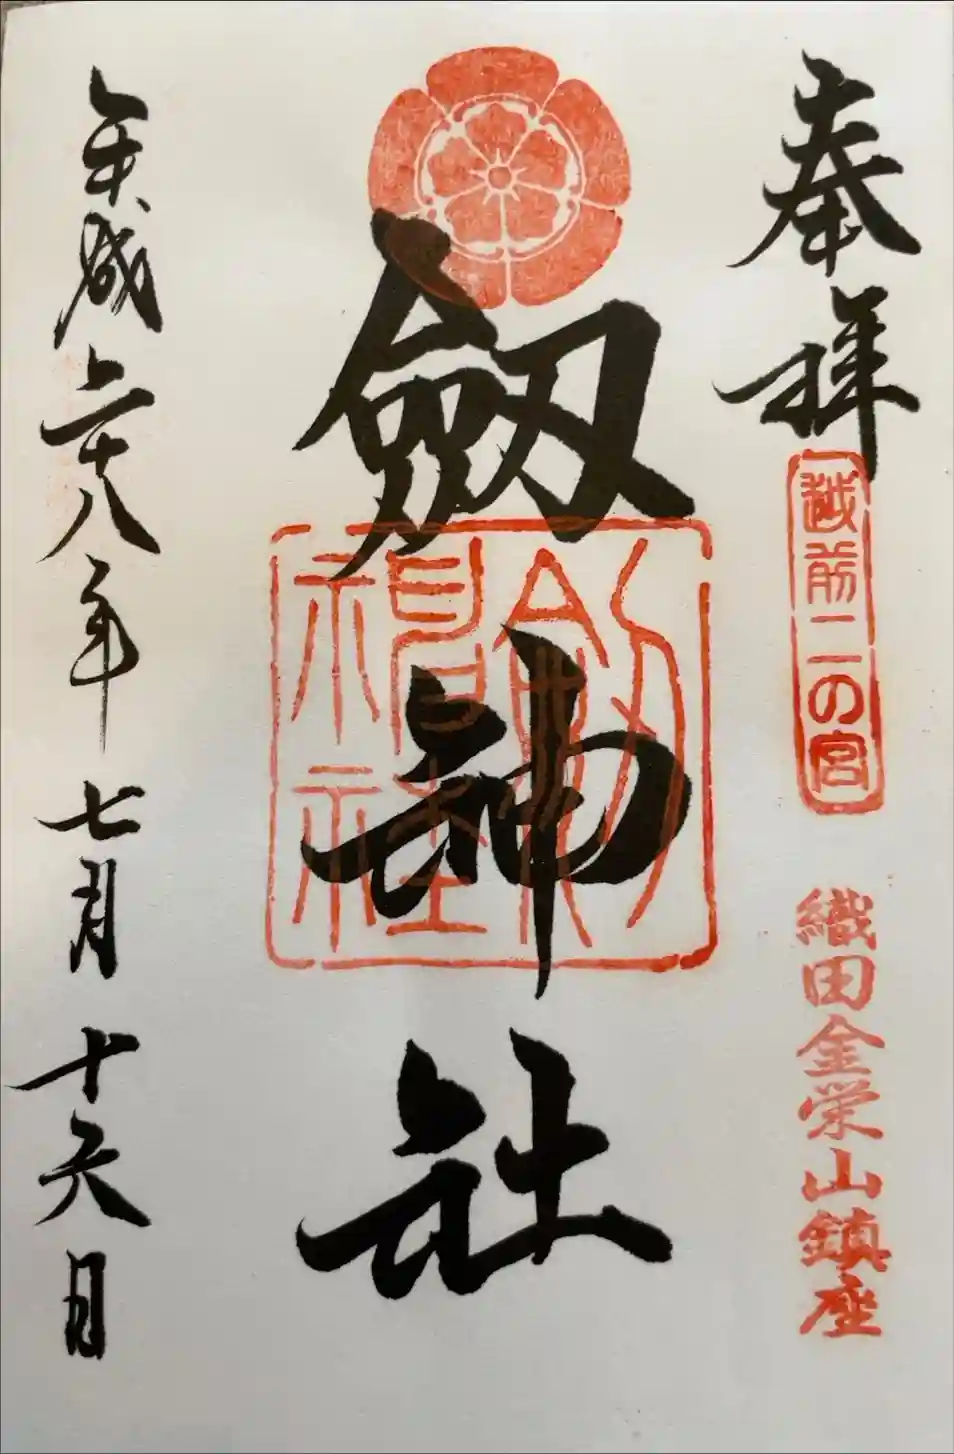 奉拝
越前二の宮
織田金栄山鎮座
劔神社
劔神社
平成二十八年七月十六日